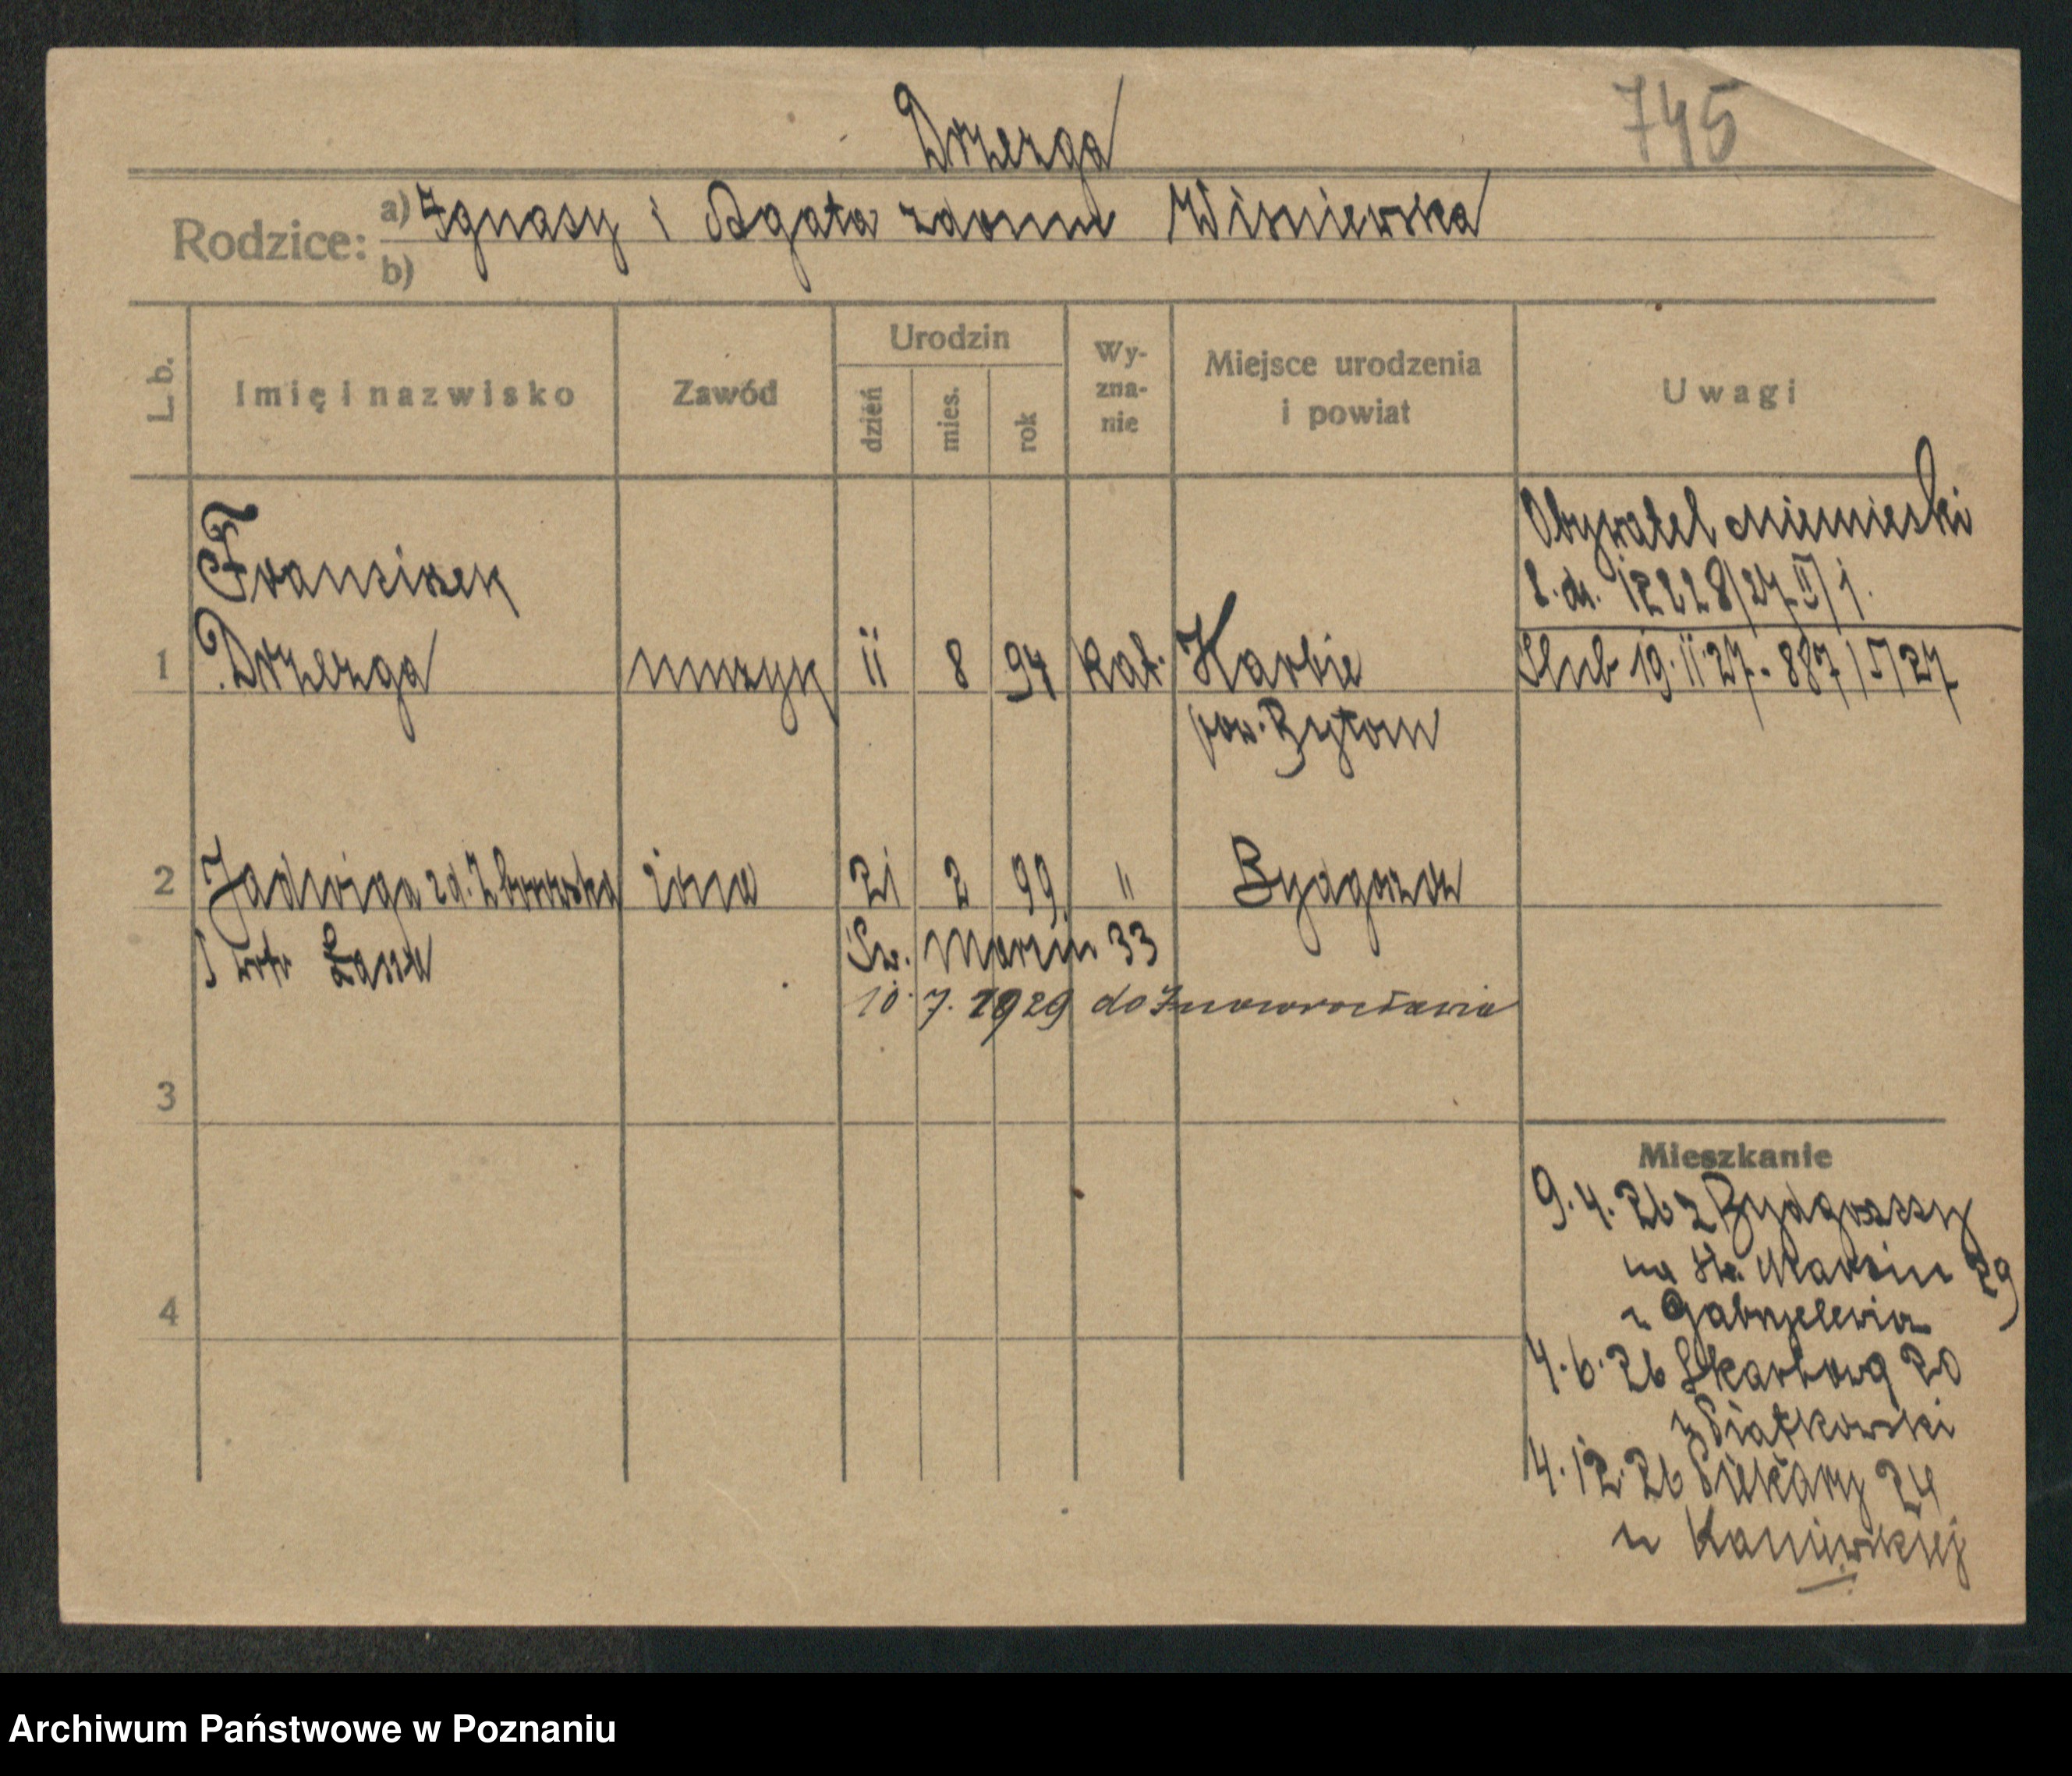 Drzezga
745
Rodzice: a) Ignacy i Agata zdomu Wiśniewska
b)
L. b.
Imię i nazwisko
Zawód
Urodzin
dzień
mies.
rok
Wy-
zna-
nie
Miejsce urodzenia
i powiat
Uwagi
Obywatel niemiecki
L. dz. 12228/27 II/1.
Franciszek
1 Drzezga muzyk 11 8 94 kat. Karbie
pow. Bytom
Ślub 19.11.27. 887/I/27
2 Jadwiga zd. Zborowska żona 21 2 99 " Bydgoszcz
Św. Marcin 33
10. 7. 1929 do Inowrocławia
3
4
Mieszkanie
9.4.26 z Bydgoszczy
na Św. Marcin 29
u Gabryelewicz
4.6.26 Skarbowa 20
u Piątkowski
4.12.26 Piekary 24
u Kaniewskiej
Archiwum Państwowe w Poznaniu